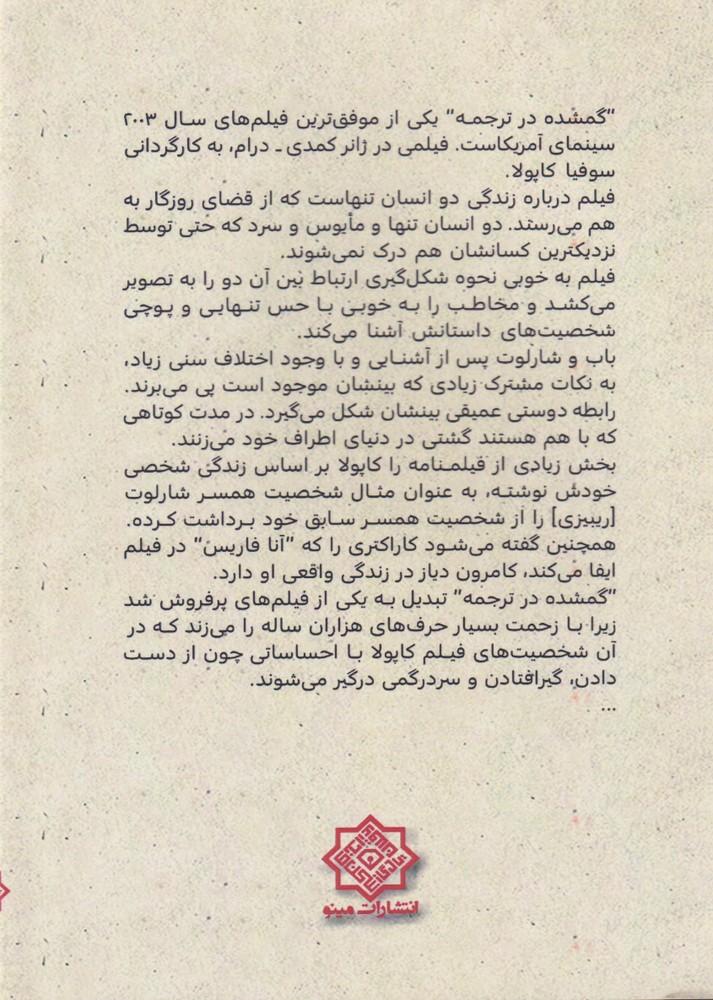 "گمشده در ترجمـه" یکی از موفق‌ترین فیلم‌های سـال ۲۰۰۳
سینمای آمریکاست. فیلمی در ژانر کمدی ـ درام، به کارگردانی
سوفیا کاپولا.
فیلم درباره زندگی دو انسان تنهاست که از قضای روزگار به
هم می‌رسند. دو انسان تنها و مأیوس و سرد که حتی توسط
نزدیکترین کسانشان هم درک نمی‌شوند.
فیلم به خوبی نحوه شکل‌گیری ارتباط بین آن دو را به تصویر
می‌کشد و مخاطب را به خوبی با حس تنهایی و پوچی
شخصیت‌های داستانش آشنا می‌کند.
باب و شارلوت پس از آشنایی و با وجود اختلاف سنی زیاد،
به نکات مشترک زیادی که بینشان موجود است پی می‌برند.
رابطه دوستی عمیقی بینشان شکل می‌گیرد. در مدت کوتاهی
که با هم هستند گشتی در دنیای اطراف خود می‌زنند.
بخش زیادی از فیلمنامه را کاپولا بر اساس زندگی شخصی
خودش نوشته، به عنوان مثال شخصیت همسر شارلوت
[ریبیزی] را از شخصیت همسر سابق خود برداشت کرده.
همچنین گفته می‌شود کاراکتری را که "آنا فاریس" در فیلم
ایفا می‌کند، کامرون دیاز در زندگی واقعی او دارد.
"گمشده در ترجمه" تبدیل به یکی از فیلم‌های پرفروش شد
زیرا با زحمت بسیار حرف‌های هزاران ساله را می‌زند که در
آن شخصیت‌های فیلم کاپولا با احساساتی چون از دست
دادن، گیرافتادن و سردرگمی درگیر می‌شوند.
...
انتشارات مینو